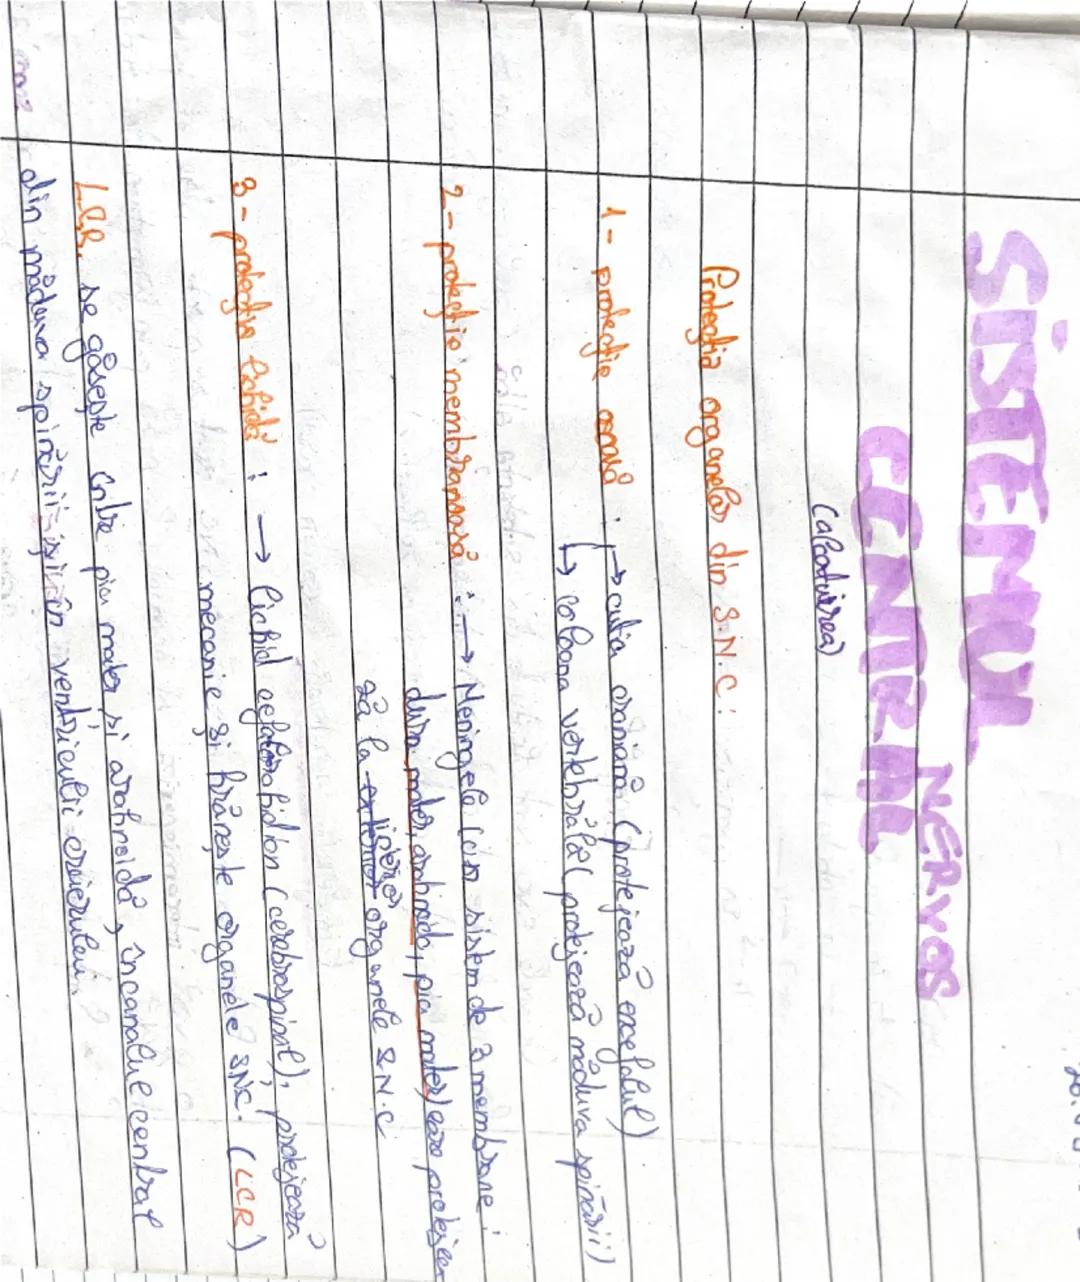 SISTEMUL
NERVOS
CENTRAL
(alcătuirea)
Protecția organelor din S.N.C:
1- protecție osoasă: → cutia craniană (protejează encefalul)
→ coloana vertebrală (protejează măduva spinării)
2- protecție membranoasă: → Meningele (un sistem de 3 membrane:
dura mater, arahnoida, pia mater) care protejea
ză la interior organele S.N.C
3- protecția lichidă: → lichid cefalorahidian (cerebrospinal), protejează
mecanic și hrănește organele SNC. (LCR)
LCR. se găsește între pia mater și arahnoidă, în canalul central
din măduva spinării și în ventriculii creierului